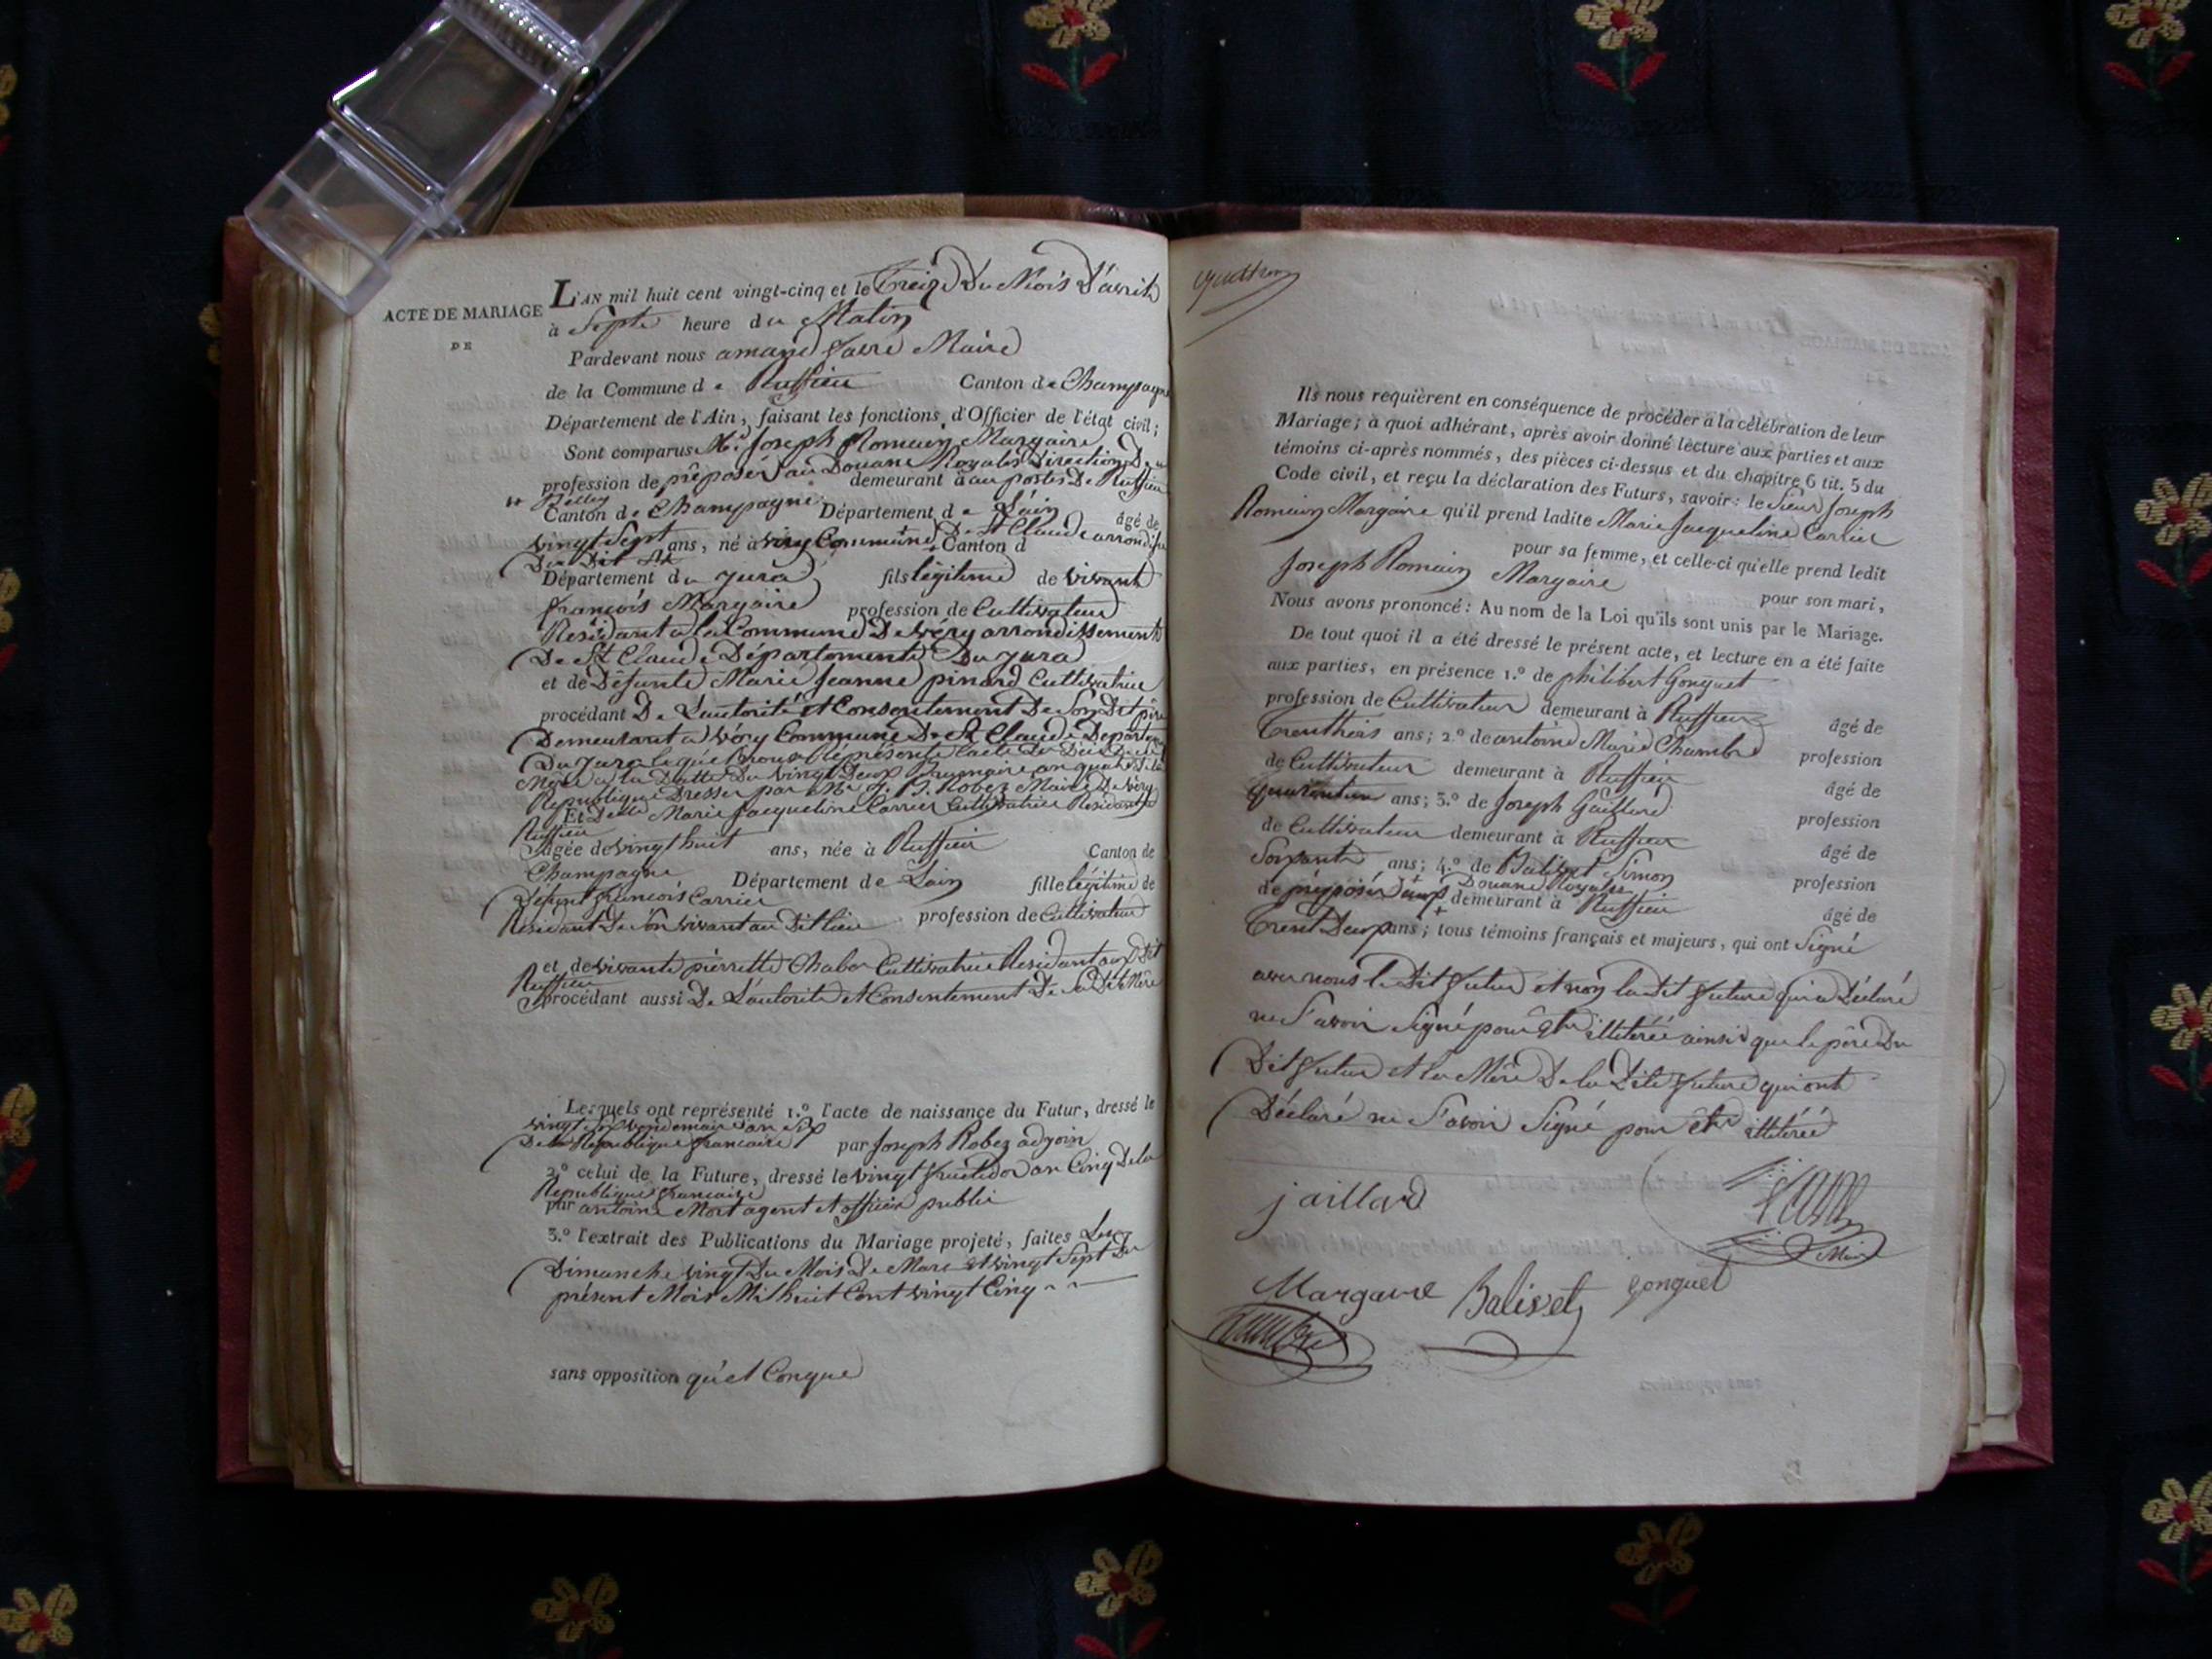 ACTE DE MARIAGE
DE
L'AN mil huit cent vingt-cinq et le Treize Du Mois D'avril
à Septe heure du Matin
Pardevant nous amand favre Maire
de la Commune de Ruffieu Canton de Champagne
Département de l'Ain, faisant les fonctions d'Officier de l'état civil;
Sont comparus Mr. Joseph Romain Margaire
profession de préposér au Douane Royales Direction De
Belley demeurant à au postes De Ruffieu
Canton de Champagne Département de Lain âgé de
vingt Sept ans, né à viry Commune De St Claude arrondisse
Du Dit St Canton d
Département du Jura fils légitime de vivant
francois Margaire profession de Cultivateur
Résidant a la Commune De véry arrondissement
De St Claude Département Du Jura
et de Défunte Marie Jeanne pinard Cultivatrice
procédant De Lautorité et Consentement De Son Dit père
Demeurant a véry Commune De St Claude Departem
Du Jura lequel nous a Représenté lacte De Décès De sa
Mère a la Datte Du vingt Deux an quatre De la
Republique Dresser par Mr J. B. Robez Maire De véry
Et Delle Marie Jacqueline Carrier Cultivatrice Residante a
Ruffieu
âgée de vingt huit ans, née à Ruffieu Canton de
Champagne Département de Lain fille légitime de
Défunt francois Carrier
Résidant De son vivant au Dit lieu profession de Cultivateur
et de vivante pierrette Chabor Cultivatrice Residant au Dit
Ruffieu
procédant aussi De L'autorité et Consentement De Sa Dit Mère
Lesquels ont représenté 1.º l'acte de naissance du Futur, dressé le
vingt Six vendemiair an Six
De la Republique francaise par Joseph Robez adjoin
2.º celui de la Future, dressé le vingt fructidor an Cinq De la
Republique francaise
par antoine Mort agent et officier public
3.º l'extrait des Publications du Mariage projeté, faites Les
Dimanche vingt Du Mois De Mars et vingt Sept Du
présent Mois Mil huit Cent vingt Cinq
sans opposition quel Conque
Ils nous requièrent en conséquence de procéder à la célébration de leur
Mariage; à quoi adhérant, après avoir donné lecture aux parties et aux
témoins ci-après nommés, des pièces ci-dessus et du chapitre 6 tit. 5 du
Code civil, et reçu la déclaration des Futurs, savoir: le Sieur Joseph
Romain Margaire qu'il prend ladite Marie Jacqueline Carrier
pour sa femme, et celle-ci qu'elle prend ledit
Joseph Romain Margaire pour son mari,
Nous avons prononcé: Au nom de la Loi qu'ils sont unis par le Mariage.
De tout quoi il a été dressé le présent acte, et lecture en a été faite
aux parties, en présence 1.º de philibert Gonguet
profession de Cultivateur demeurant à Ruffieu âgé de
Trentrois ans; 2.º de antoine Marie Chambre profession
de Cultivateur demeurant à Ruffieu âgé de
ans; 3.º de Joseph Gaillard profession
de Cultivateur demeurant à Ruffieu âgé de
Soixante ans; 4.º de Balivet Simon profession
de préposér aux Douane Royales demeurant à Ruffieu âgé de
Trent Deux ans; tous témoins français et majeurs, qui ont Signé
avec nous le Dit futur et non la Dit future qui a Déclaré
ne Savoir Signé pour être illitérée ainsi que le père Du
Dit futur et la Mère De la Dite future qui ont
Déclaré ne Savoir Signé pour être illitéré
jaillard
Margaire Balivet gonguet